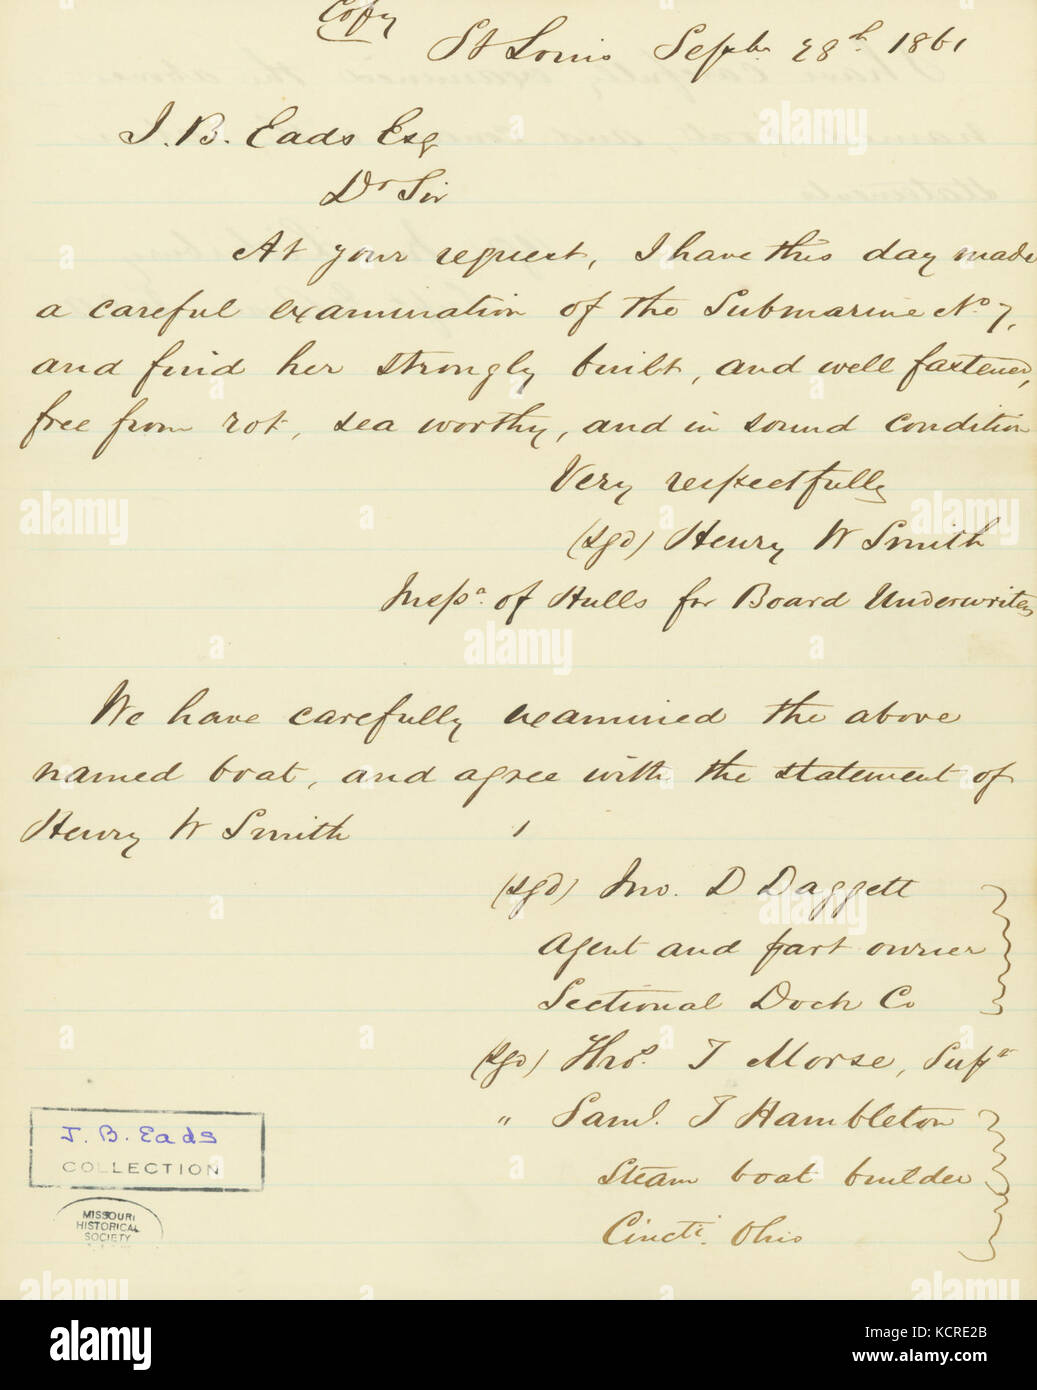 Copy
St Louis Septr 28th 1861
J. B. Eads Esq
Dr Sir
At your request, I have this day made
a careful examination of the Submarine No 7,
and find her strongly built, and well fastened,
free from rot, sea worthy, and in sound condition
Very respectfully
(sgd) Henry W Smith
Inspr. of Hulls for Board Underwriters
We have carefully examined the above
named boat, and agree with the statement of
Henry W Smith
(sgd) Jno. D Daggett
Agent and part owner
Sectional Dock Co
(sgd) Thos. T Morse, Supt
" Saml. T Hambleton
Steam boat builder
Cincti. Ohio
J. B. Eads
COLLECTION
MISSOURI
HISTORICAL
SOCIETY
alamy
Image ID: KCRE2B
www.alamy.com